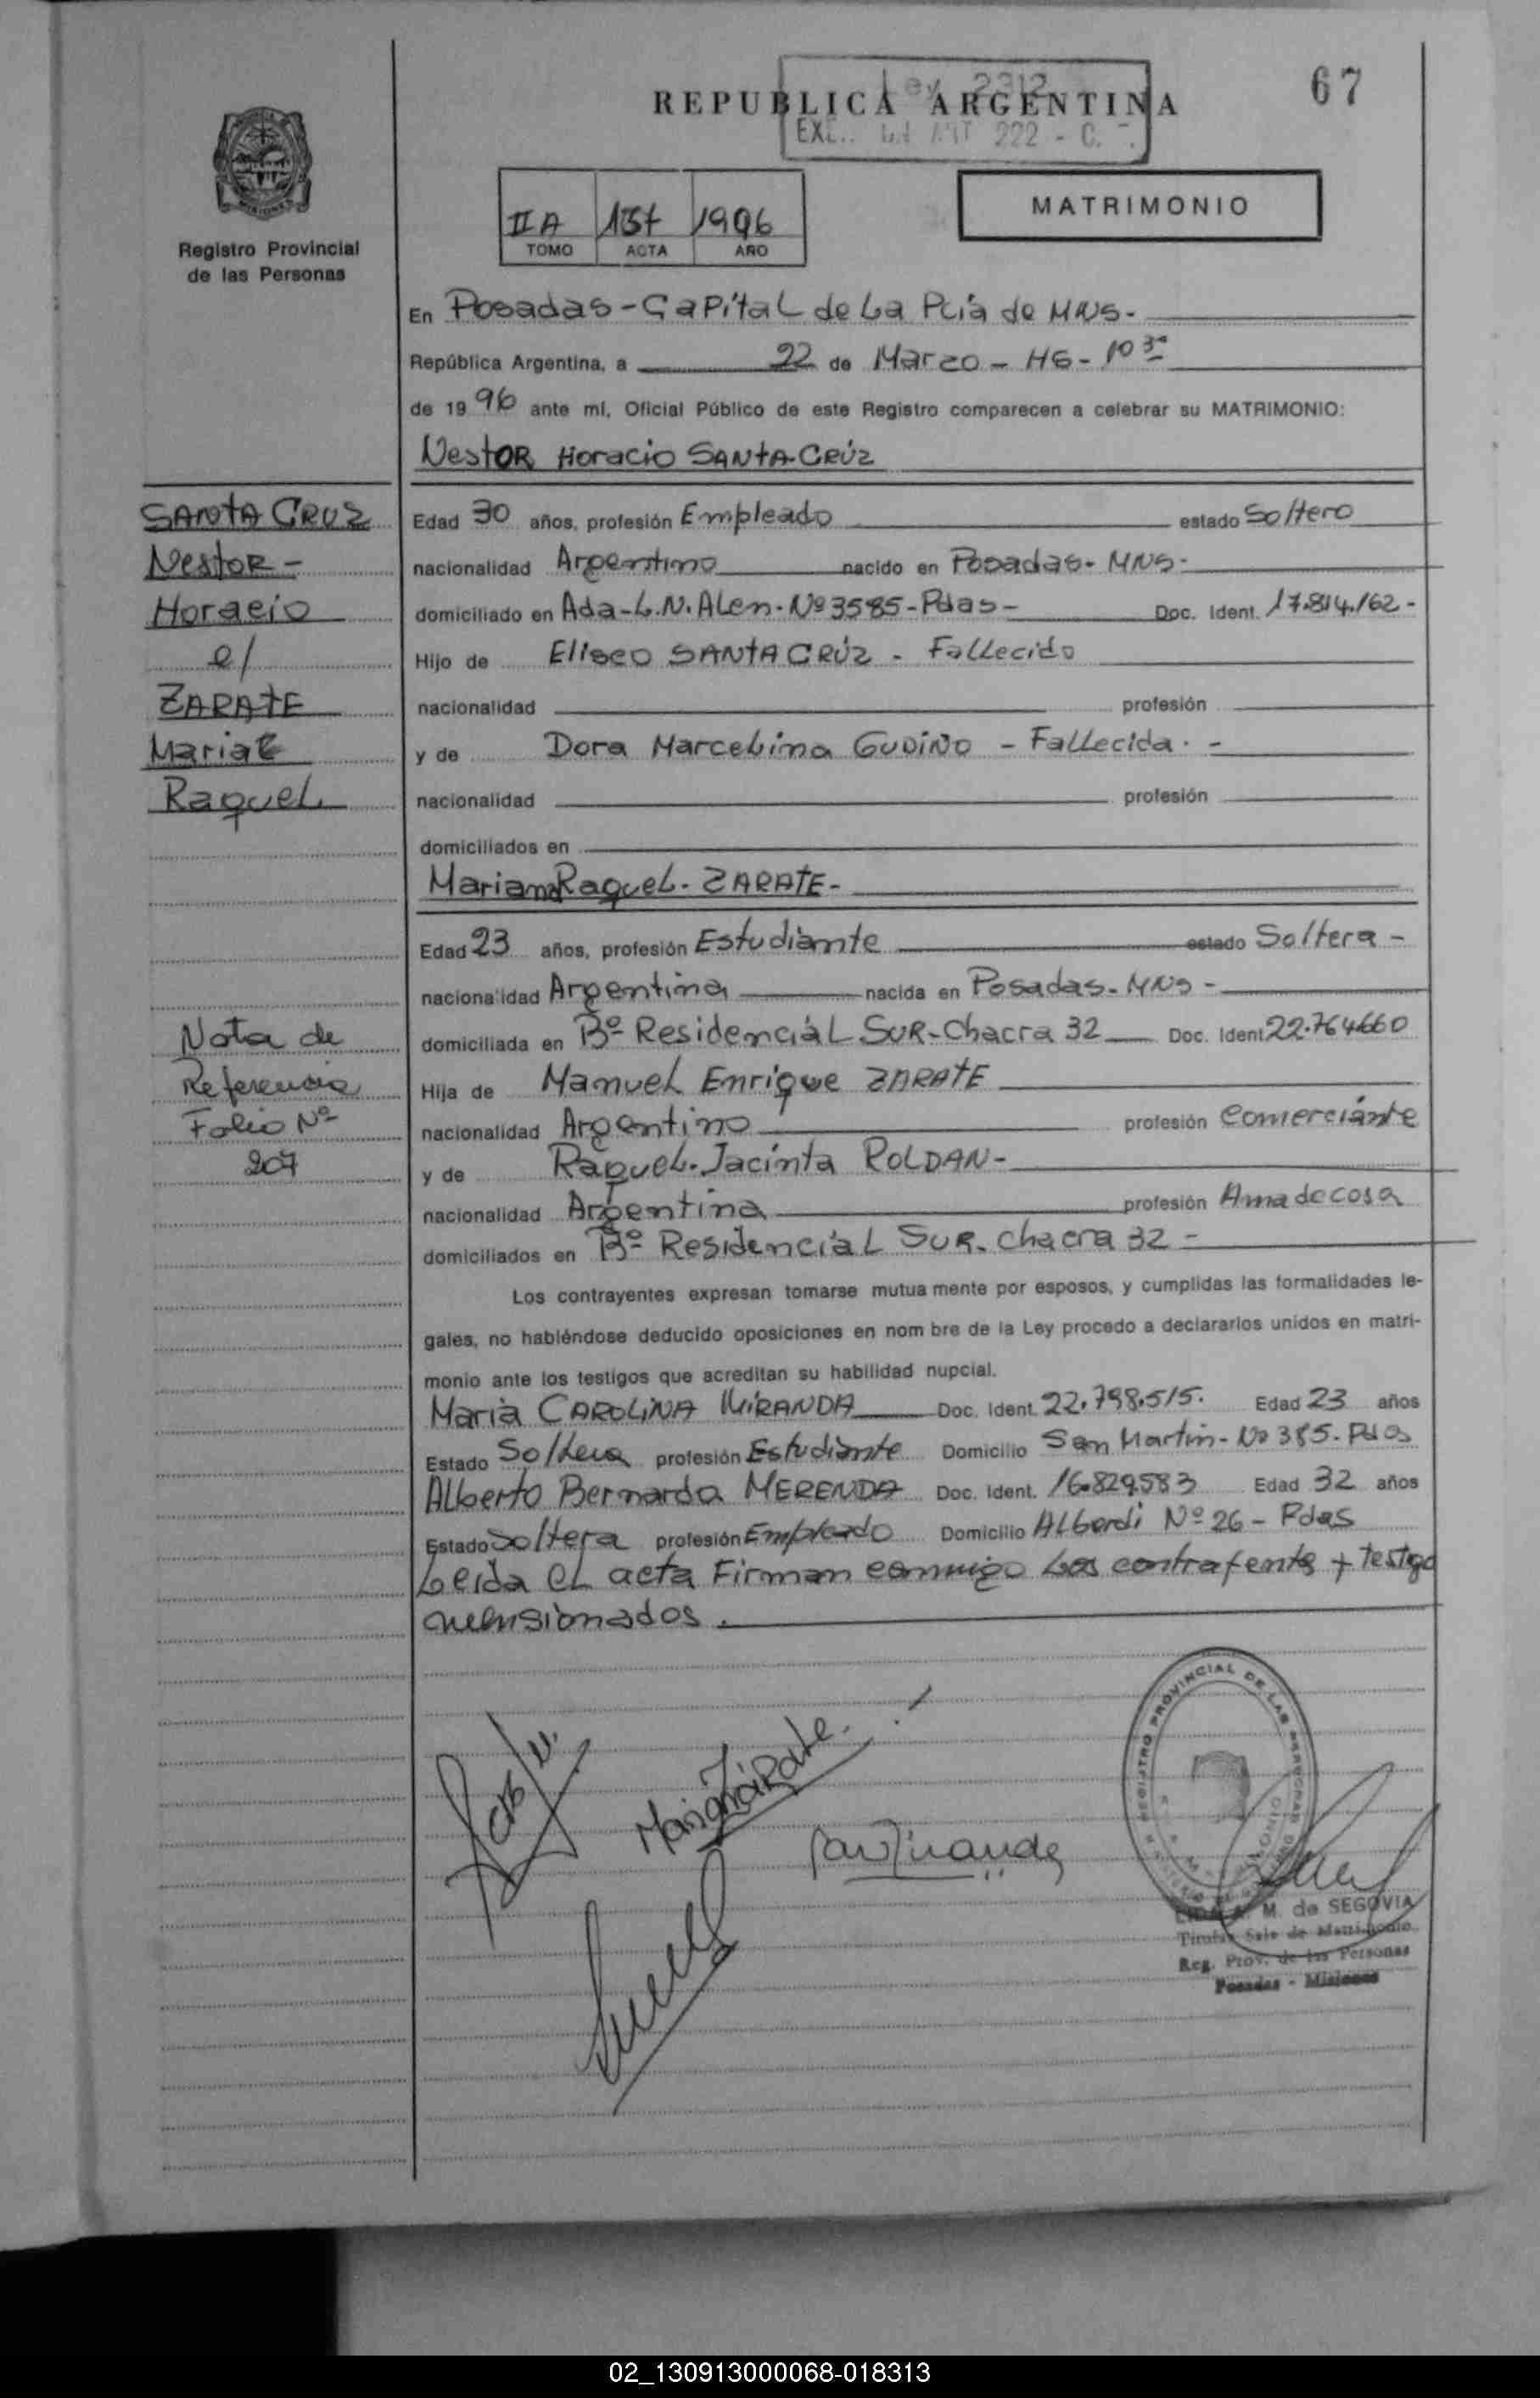 67
REPUBLICA ARGENTINA
Ley 2312
222 - C.
MATRIMONIO
II A 137 1996
TOMO ACTA AÑO
MISIONES
Registro Provincial
de las Personas
En Posadas - Capital de La Pcia de MNS.
República Argentina, a 22 de Marzo - HS - 10 30
de 1996 ante mí, Oficial Público de este Registro comparecen a celebrar su MATRIMONIO:
Nestor Horacio SANTA CRUZ
SANTA CRUZ
Nestor -
Horacio
c/
ZARATE
Raquel
Edad 30 años, profesión Empleado estado Soltero
nacionalidad Argentino nacido en Posadas - MNS -
domiciliado en Ada - L.N. Alen - Nº 3585 - Pdas - Doc. Ident. 17.814.162 -
Hijo de Eliseo SANTA CRUZ - Fallecido
nacionalidad profesión
y de Dora Marcelina GUDIÑO - Fallecida. -
nacionalidad profesión
domiciliados en
Mariana Raquel - ZARATE -
Edad 23 años, profesión Estudiante estado Soltera -
nacionalidad Argentina nacida en Posadas - MNS -
domiciliada en Bº Residencial Sur - Chacra 32 Doc. Ident 22.764.660
Hija de Manuel Enrique ZARATE
nacionalidad Argentino profesión Comerciante
y de Raquel - Jacinta ROLDAN -
nacionalidad Argentina profesión Ama de casa
domiciliados en Bº Residencial Sur - Chacra 32 -
Nota de
Referencia
Folio Nº
207
Los contrayentes expresan tomarse mutua mente por esposos, y cumplidas las formalidades le-
gales, no habiéndose deducido oposiciones en nom bre de la Ley procedo a declararlos unidos en matri-
monio ante los testigos que acreditan su habilidad nupcial.
Maria CAROLINA MIRANDA Doc. Ident. 22.798.515. Edad 23 años
Estado Soltera profesión Estudiante Domicilio San Martin - Nº 385 - Pdas
Alberto Bernardo MERENDA Doc. Ident. 16.829.583 Edad 32 años
Estado Soltera profesión Empleado Domicilio Alberdi Nº 26 - Pdas
Leida el acta Firman conmigo Los contrayente y testigo
mensionados.
Mariana Zárate.
REGISTRO PROVINCIAL DE LAS PERSONAS
A. M. de SEGOVIA
Titular Sala de Matrimonio
Reg. Prov. de las Personas
Posadas - Misiones
02_130913000068-018313